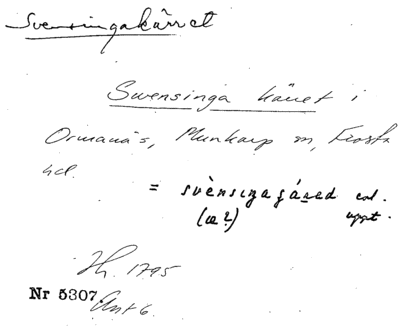 Svensingakärret
Swensinga kärret i
Ormanäs, Munkarp sn, Frosta
hd.
= svènsingagáred enl.
(æ?) uppt.
Th. 1795
Nr 5307. Akt 6.